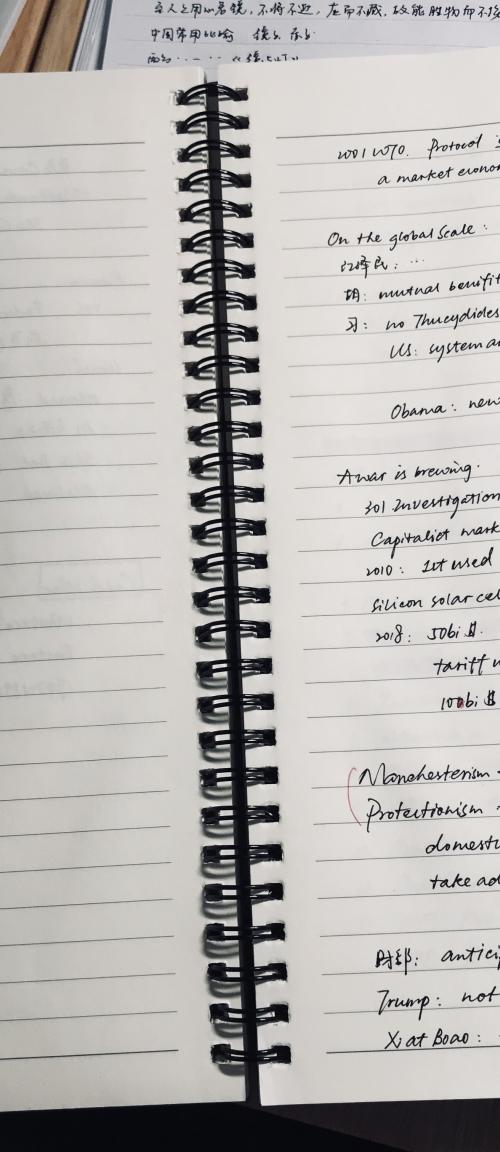 至人之用心若镜，不将不迎，应而不藏，故能胜物而不
中国常用比喻 镜子
2001 WTO. Protocol
a market econo
On the global scale :
江泽民: ...
胡: mutual benifit
习: no Thucydides
US: system a
Obama: new
A war is brewing.
301 Investigation
Capitalist mark
2010: 1st used
silicon solar cel
2018: 50bi $.
tariff
100bi $
Manchesterism
Protectionism
domest
take ad
财部: antici
Trump: not
Xi at Boao: